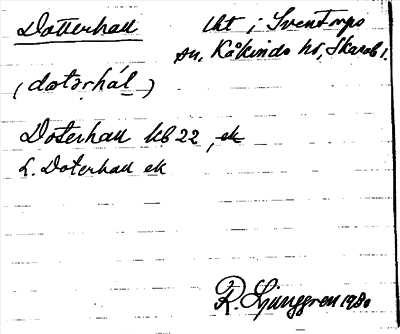 Dotterhall lht i Sventorps
sn, Kåkinds hd, Skarab l.
(dotərhál)
Doterhall kb 22, ek
L. Doterhall ek
R. Ljunggren 1980